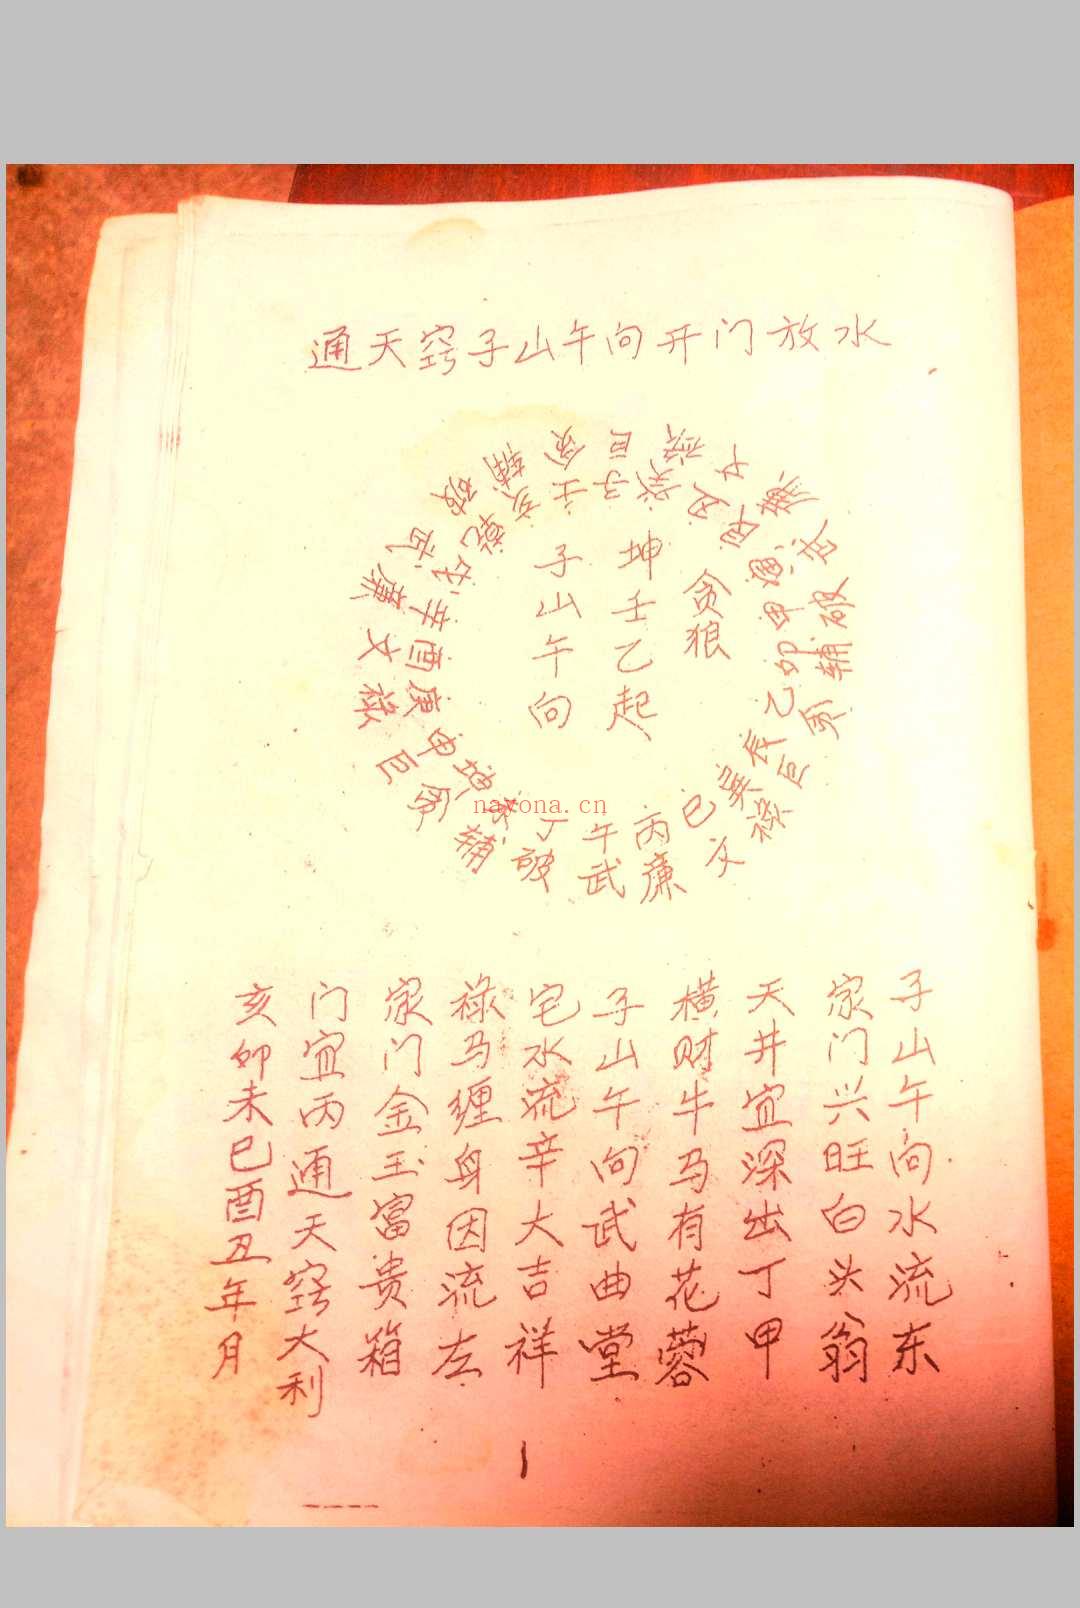 通天窍子山午向开门放水
贪巨禄文廉武破辅贪巨禄文廉武破辅贪巨禄文廉武破辅
壬子癸丑艮寅甲卯乙辰巽巳丙午丁未坤申庚酉辛戌乾亥
子山午向
坤壬乙起
贪狼
nayona.cn
子山午向水流东
家门兴旺白头翁
天井宜深出丁甲
横财牛马有花蓉
子山午向武曲堂
宅水流辛大吉祥
禄马缠身因流左
家门金玉富贵箱
门宜丙通天窍大利
亥卯未巳酉丑年月
1